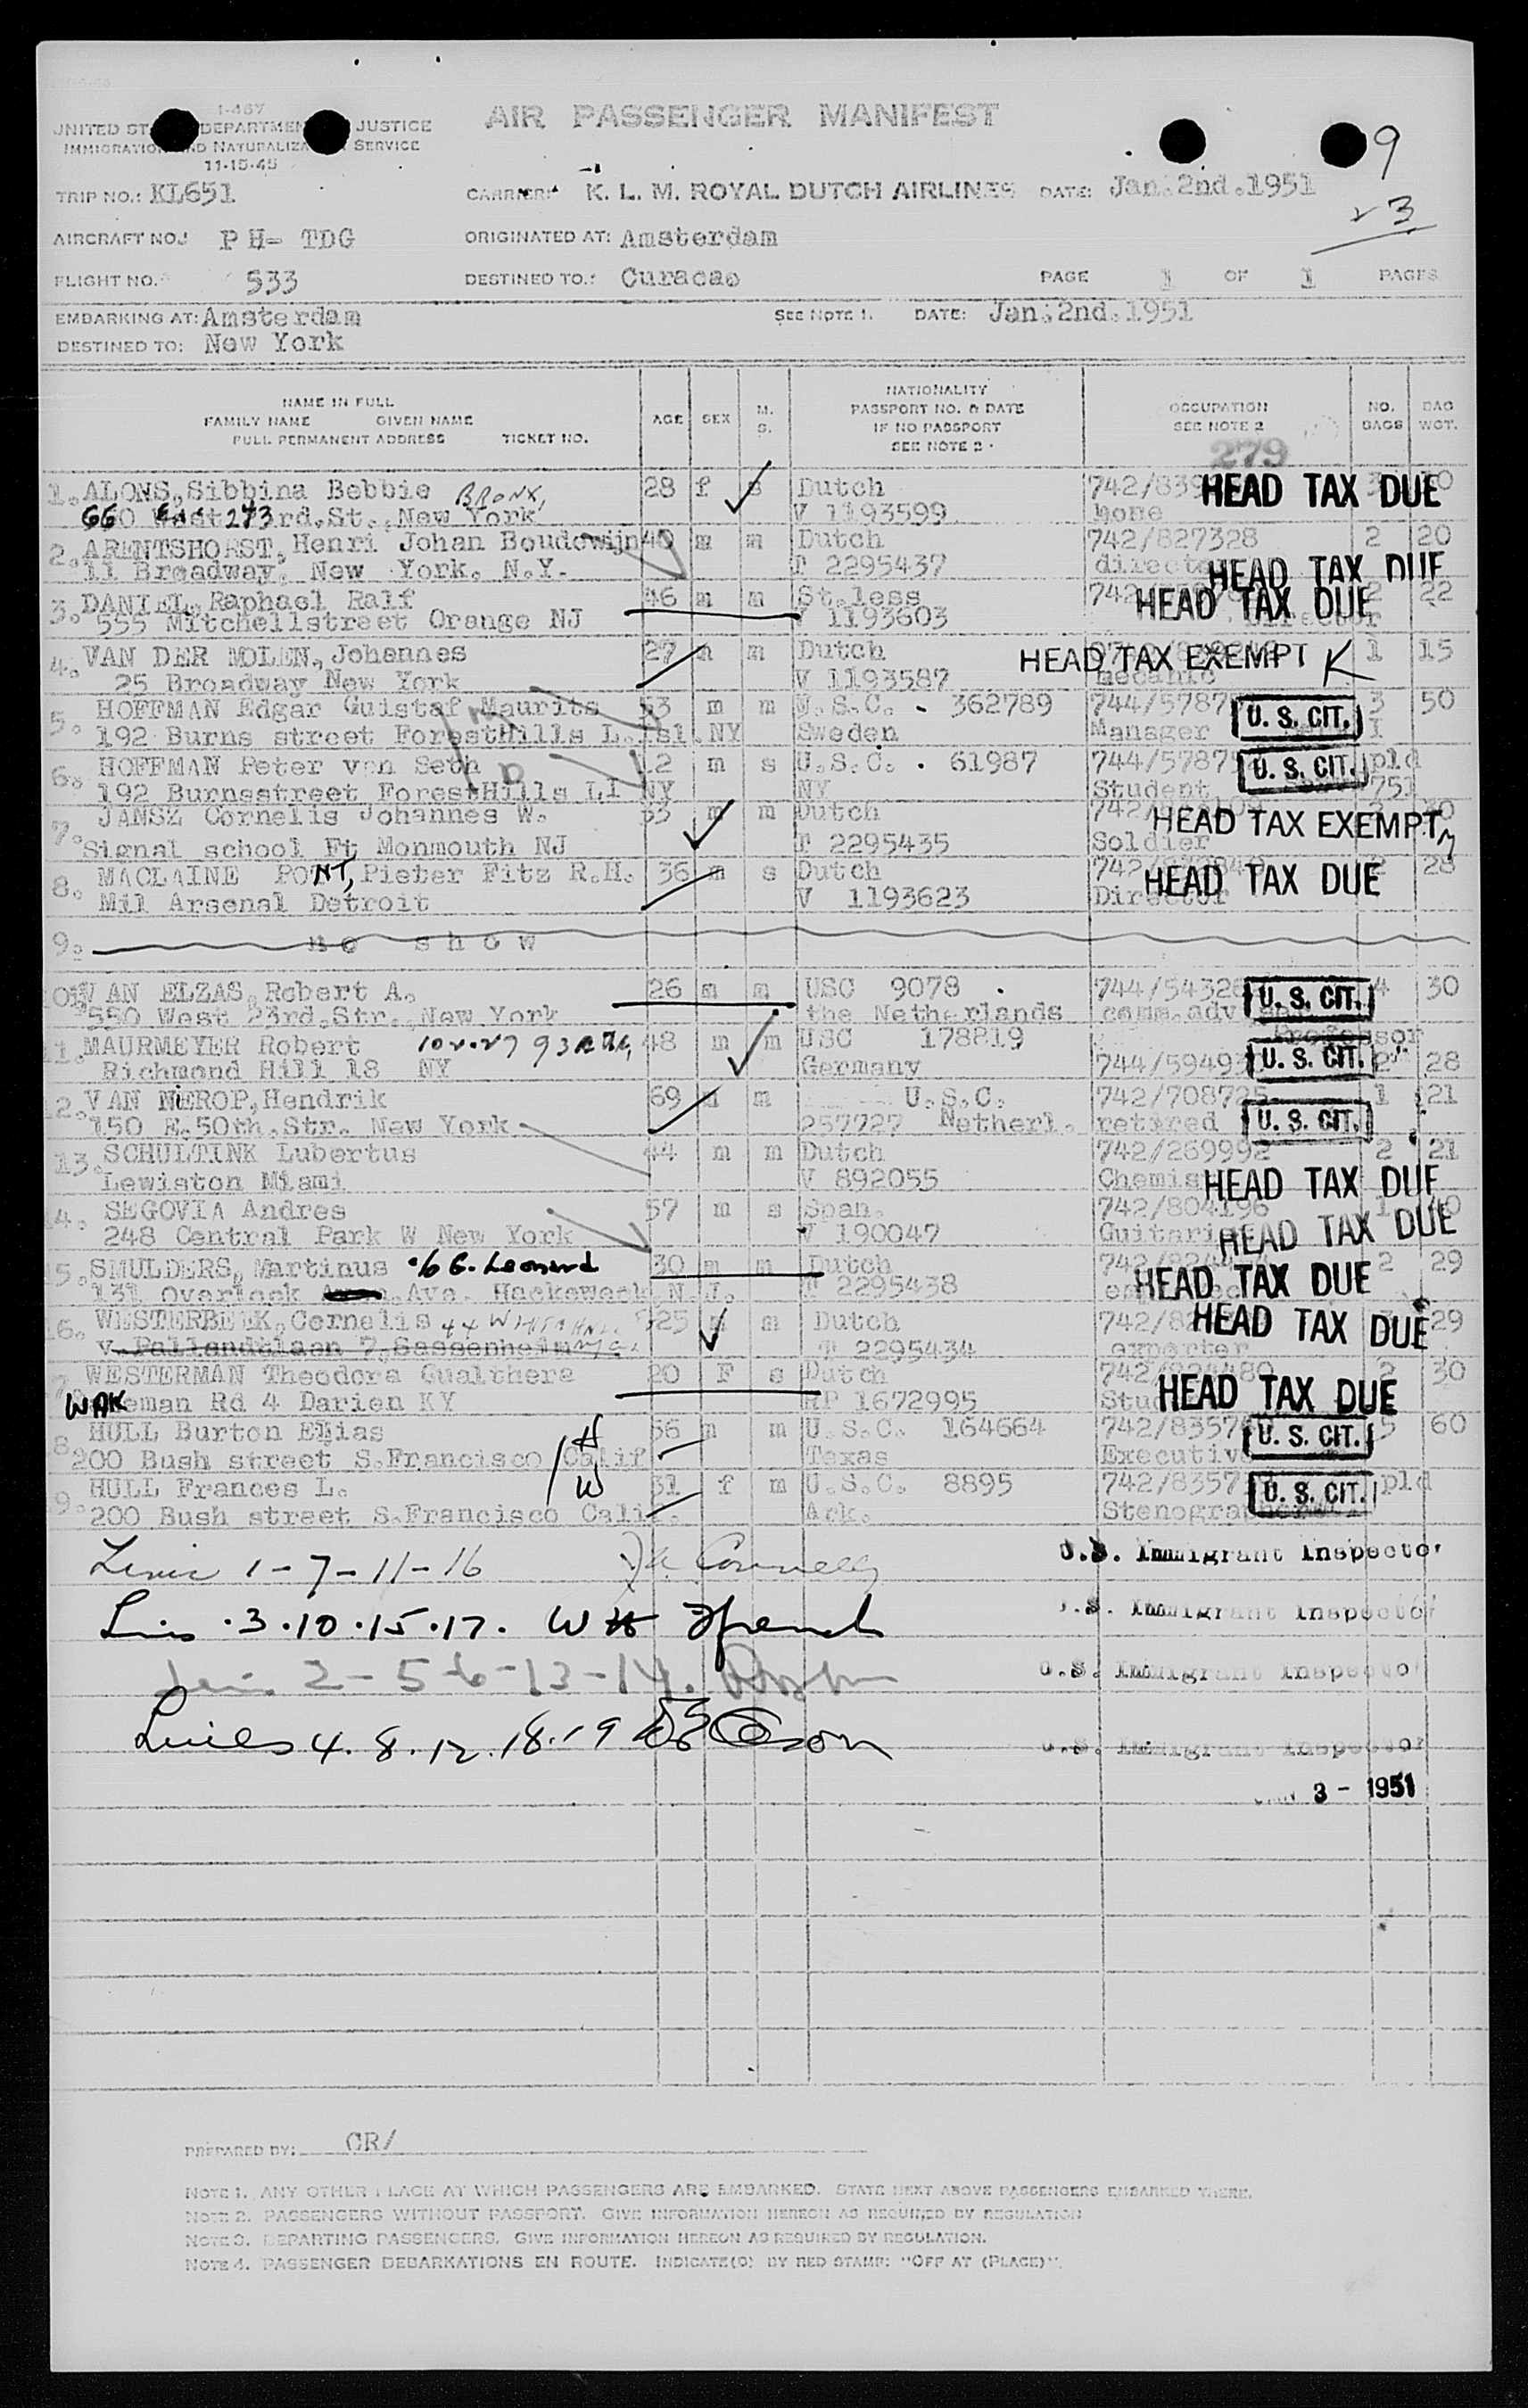 I-467
UNITED ST DEPARTMEN JUSTICE
IMMIGRATION ND NATURALIZA SERVICE
11-15-45
AIR PASSENGER MANIFEST
9
TRIP NO.: KL651 CARRIER: K. L. M. ROYAL DUTCH AIRLINES DATE: Jan. 2nd. 1951
23
AIRCRAFT NO.: PH- TDG ORIGINATED AT: Amsterdam
FLIGHT NO. 533 DESTINED TO.: Curacao PAGE 1 OF 1 PAGES
EMBARKING AT: Amsterdam SEE NOTE 1. DATE: Jan. 2nd. 1951
DESTINED TO: New York
NAME IN FULL
FAMILY NAME GIVEN NAME
FULL PERMANENT ADDRESS TICKET NO.
AGE SEX M. S.
NATIONALITY
PASSPORT NO. & DATE
IF NO PASSPORT
SEE NOTE 2
OCCUPATION
SEE NOTE 2
NO. BAGS BAG WGT.
279
1. ALONS, Sibbina Bebbie BRONX, 28 f s Dutch 742/839 HEAD TAX DUE
660 273rd. St., New York V 1193599 none
2. ARENTSHORST, Henri Johan Boudewijn 40 m m Dutch 742/827328 2 20
11 Broadway. New York. N.Y. T 2295437 HEAD TAX DUE
3. DANIEL, Raphael Ralf 46 m m St.less 742/ HEAD TAX DUE 2 22
555 Mitchellstreet Orange NJ V 1193603
4. VAN DER MOLEN, Johannes 27 m m Dutch HEAD TAX EXEMPT K 1 15
25 Broadway New York V 1193587 mecanic
5. HOFFMAN Edgar Guistaf Maurits 53 m m U.S.C. - 362789 744/5787 U. S. CIT. 3 50
192 Burns street ForestHills L. Isl. NY Sweden Manager
6. HOFFMAN Peter von Seth 12 m s U.S.C. . 61987 744/5787 U. S. CIT. pld
192 Burnsstreet ForestHills LI NY NY Student 751
7. JANSZ Cornelis Johannes W. 33 m m Dutch 742/ HEAD TAX EXEMPT
Signal school Ft Monmouth NJ T 2295435 Soldier
8. MACLAINE PONT, Pieter Fitz R.H. 36 m s Dutch 742/ HEAD TAX DUE 28
Mil Arsenal Detroit V 1193623 Director
9. no show
10. VAN ELZAS, Robert A. 26 m m USC 9078 . 744/54326 U. S. CIT. 4 30
550 West 23rd. Str. New York the Netherlands comm. adv
11. MAURMEYER Robert 48 m m USC 178219 Professor
Richmond Hill 18 NY Germany 744/59493 U. S. CIT. 2 28
12. VAN NIEROP, Hendrik 69 m m U.S.C. 742/708725 1 21
150 E. 50th. Str. New York 257727 Netherl. retired U. S. CIT.
13. SCHULTINK Lubertus 44 m m Dutch 742/269992 2 21
Lewiston Miami V 892055 Chemis HEAD TAX DUE
14. SEGOVIA Andres 57 m s Span. 742/804196 1 40
248 Central Park W New York V 190047 Guitaris HEAD TAX DUE
15. SMULDERS, Martinus c/o G. Leonard 30 m m Dutch 742/824 2 29
131 Overlook Ave. Hackeweck N.J. T 2295438 HEAD TAX DUE
16. WESTERBEEK, Cornelis 44 WHITEHALL 25 m m Dutch 742/82 HEAD TAX DUE 29
v. Pallandtlaan 7, Sassenheim T 2295434 exporter
WESTERMAN Theodora Gualthera 20 F s Dutch 742/824480 2 30
WAKeman Rd 4 Darien KY RP 1672995 Stud HEAD TAX DUE
8. HULL Burton Elias H 56 m m U.S.C. 164664 742/8357 U. S. CIT. 5 60
200 Bush street S.Francisco Calif Texas Executiv
9. HULL Frances L. W 31 f m U.S.C. 8895 742/8357 U. S. CIT. pld
200 Bush street S.Francisco Calif. Ark. Stenographer
Lines 1-7-11-16 Connelly U.S. Immigrant Inspector
Lines .3.10.15.17. WH French U.S. Immigrant Inspector
Lines 2-5-6-13-14. U.S. Immigrant Inspector
Lines 4.8.12.18.19 Olson U.S. Immigrant Inspector
JAN 3 - 1951
PREPARED BY: CR/
NOTE 1. ANY OTHER PLACE AT WHICH PASSENGERS ARE EMBARKED. STATE NEXT ABOVE PASSENGERS EMBARKED THERE.
NOTE 2. PASSENGERS WITHOUT PASSPORT. GIVE INFORMATION HEREON AS REQUIRED BY REGULATION
NOTE 3. DEPARTING PASSENGERS. GIVE INFORMATION HEREON AS REQUIRED BY REGULATION.
NOTE 4. PASSENGER DEBARKATIONS EN ROUTE. INDICATE(D) BY RED STAMP: "OFF AT (PLACE)".